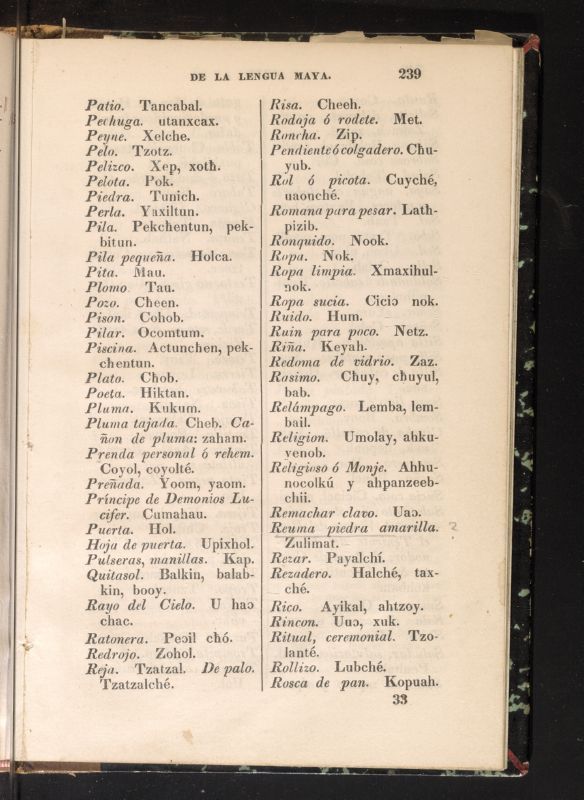 DE LA LENGUA MAYA. 239
Patio. Tancabal.
Pechuga. utanxcax.
Peyne. Xelche.
Pelo. Tzotz.
Pelizco. Xep, xotħ.
Pelota. Pok.
Piedra. Tunich.
Perla. Yaxiltun.
Pila. Pekchentun, pek-
bitun.
Pila pequeña. Holca.
Pita. Mau.
Plomo Tau.
Pozo. Cheen.
Pison. Cohob.
Pilar. Ocomtum.
Piscina. Actunchen, pek-
chentun.
Plato. Cħob.
Poeta. Hiktan.
Pluma. Kukum.
Pluma tajada. Cheb. Ca-
ñon de pluma: zaham.
Prenda personal ó rehem.
Coyol, coyolté.
Preñada. Yoom, yaom.
Príncipe de Demonios Lu-
cifer. Cumahau.
Puerta. Hol.
Hoja de puerta. Upixhol.
Pulseras, manillas. Kap.
Quitasol. Balkin, balab-
kin, booy.
Rayo del Cielo. U haɔ
chac.
Ratonera. Peɔil cħó.
Redrojo. Zohol.
Reja. Tzatzal. De palo.
Tzatzalché.
Risa. Cheeh.
Rodaja ó rodete. Met.
Roncha. Zip.
Pendiente ó colgadero. Cħu-
yub.
Rol ó picota. Cuyché,
uaonché.
Romana para pesar. Lath-
pizib.
Ronquido. Nook.
Ropa. Nok.
Ropa limpia. Xmaxihul-
nok.
Ropa sucia. Ciciɔ nok.
Ruido. Hum.
Ruin para poco. Netz.
Riña. Keyah.
Redoma de vidrio. Zaz.
Rasimo. Cħuy, cħuyul,
bab.
Relámpago. Lemba, lem-
bail.
Religion. Umolay, ahku-
yenob.
Religioso ó Monje. Ahhu-
nocolkú y ahpanzeeb-
chii.
Remachar clavo. Uaɔ.
Reuma piedra amarilla. 2
Zulimat.
Rezar. Payalchí.
Rezadero. Halché, tax-
ché.
Rico. Ayikal, ahtzoy.
Rincon. Uuɔ, xuk.
Ritual, ceremonial. Tzo-
lanté.
Rollizo. Lubché.
Rosca de pan. Kopuah.
33